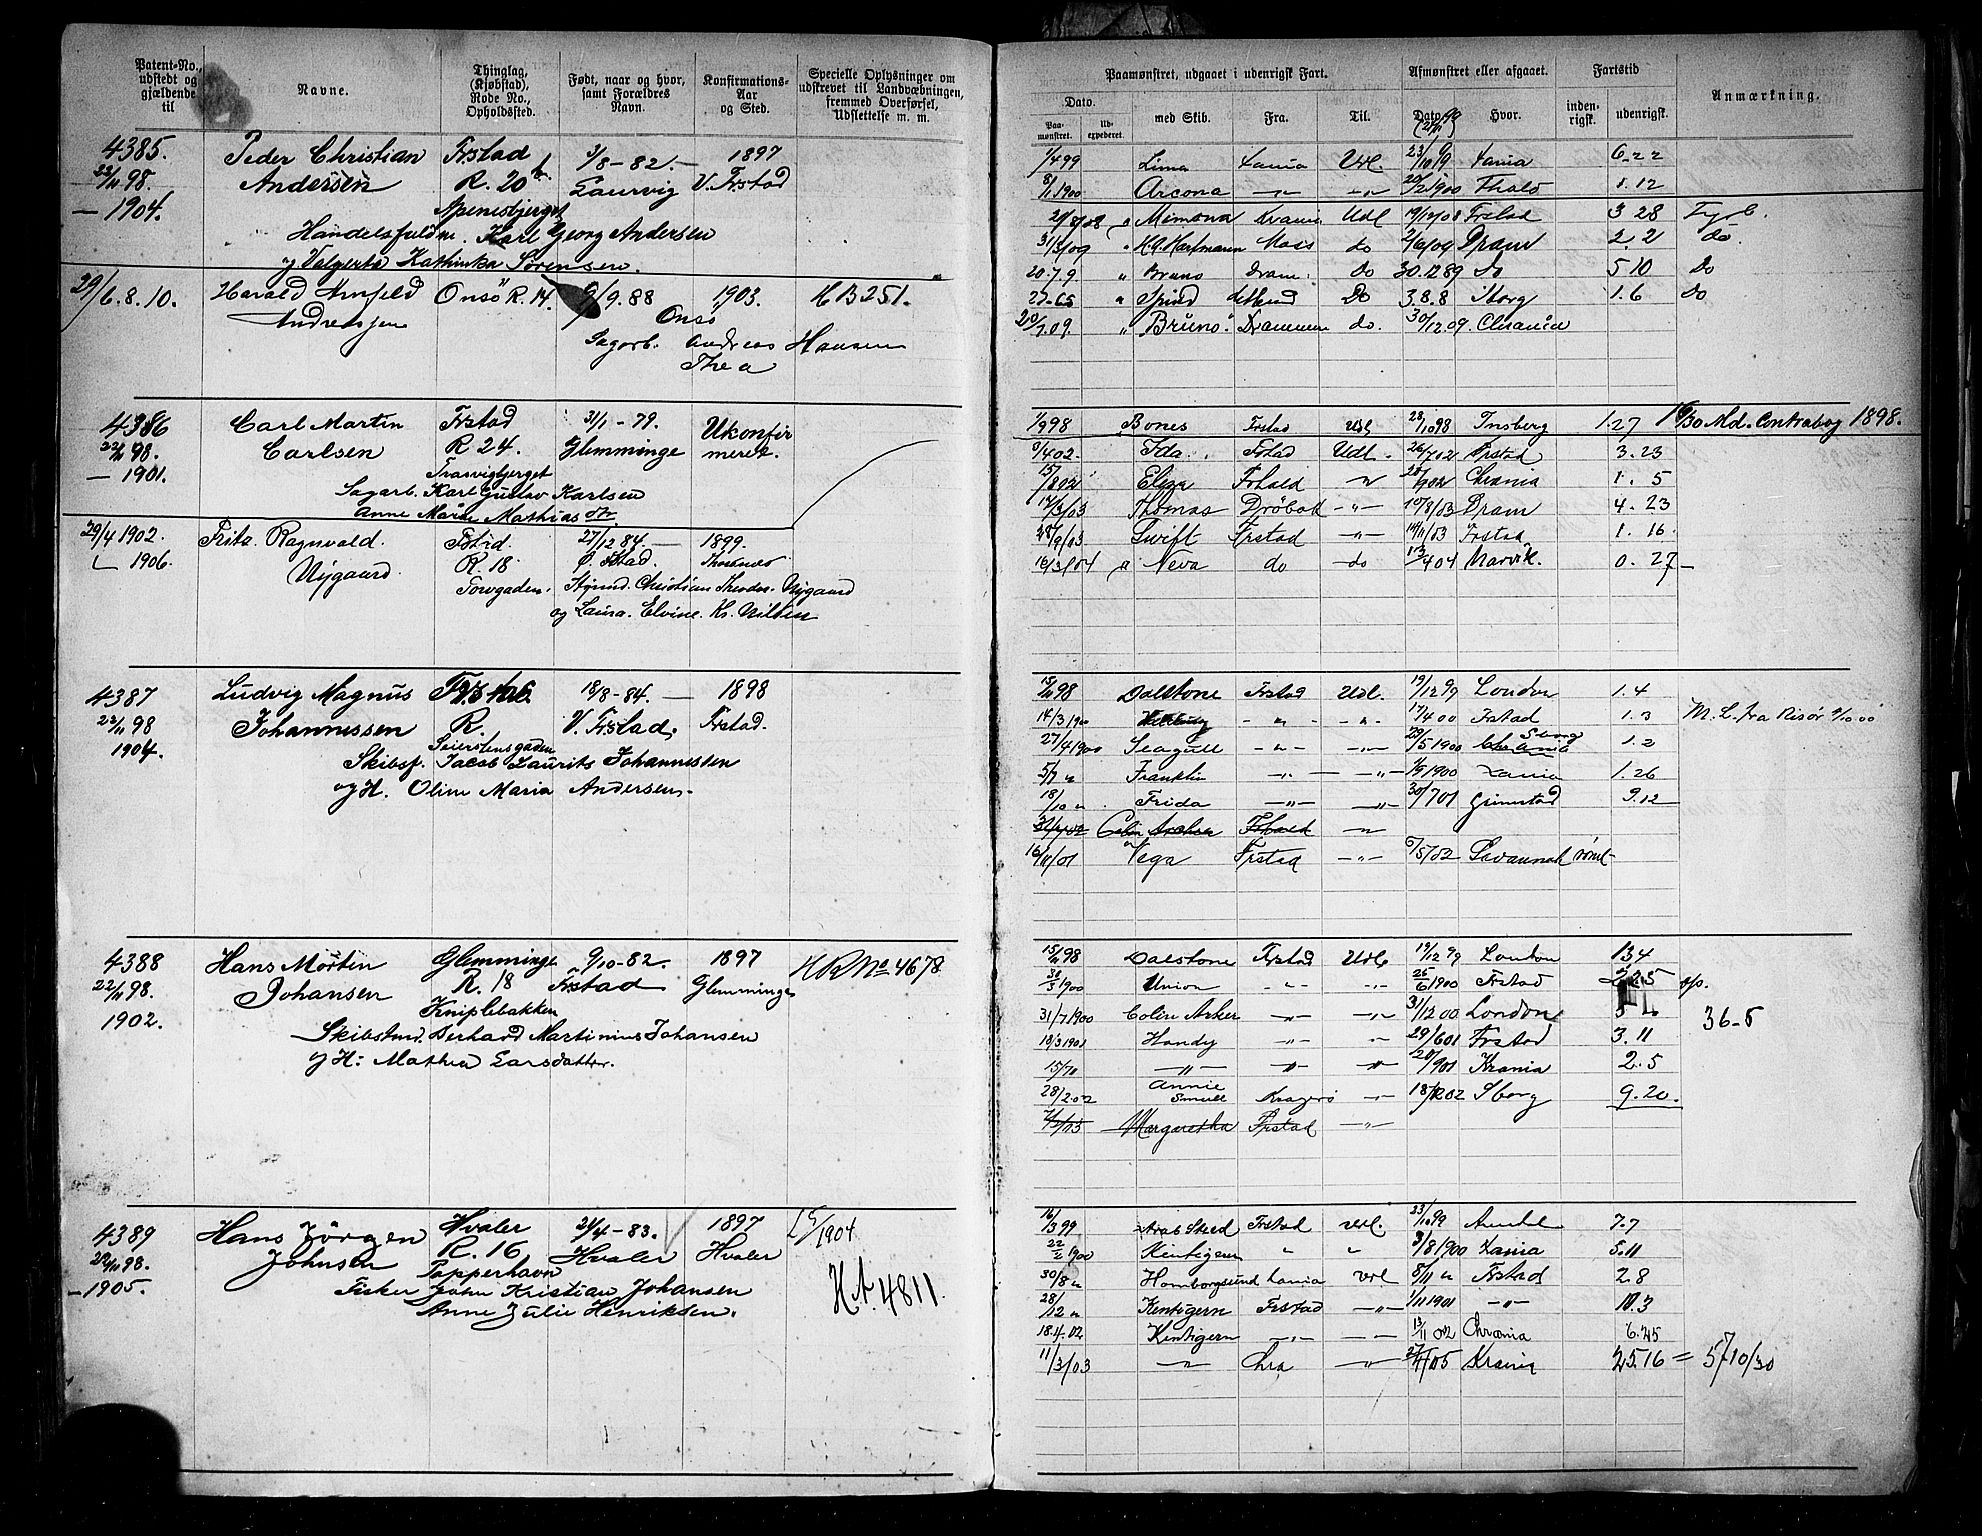 Patent-No., udstedt og gjældende til
Navne.
Thinglag, (Kjøbstad), Rode No., Opholdssted.
Født, naar og hvor, samt Forældres Navn.
Konfirmations-Aar og Sted.
Specielle Oplysninger om udskrevet til Landvæbningen, fremmed Overførsel, Udslettelse m. m.
4385. Peder Christian Frstad 3/8-82. — 1897
22/11 98. Andersen R. 20 Laurvig V. Frstad
— 1904. Apenesbjerget
Handelsfuldm. Karl Georg Andersen
og Valgerta Kathinka Sørensen.
29/6. 8. 10. Harald Arnfeld Onsö R. 14. 9/9. 88 1903. HB 251.
Andreassen Onsö
Sagarb. Andreas Hansen
Thea
4386 Carl Martin Frstad 31/1-79. Ukonfir
22/11 98. Carlsen R 24. Glemminge meret.
— 1901. Trasvigbjerget
Sagarb. Karl Gustav Karlsen
Anne Marie Mathias dtr.
29/4 1902. Fritz Ragnvald Fstad. 27/12 84. — 1899.
1906. Nygaard R. 18 Fstad.
Torvgaden. Styrmd. Christian Theodor Nygaard
og Laura Elvine Kr. Nilsen
4387 Ludvig Magnus 18/8-84. — 1898
22/11 98 Johannessen R. V. Frstad. Frstad.
1904. Seierstensgaden
Skibsf. Jacob Laurits Johannessen
og H. Oline Maria Andersen.
4388 Hans Morten Glemminge 9/10-82. 1897 HR No 4678
22/11 98. Johansen R. 18 Frstad Glemminge
1902. Kniplebakken
Skibstmd. Berhard Martinius Johansen
og H: Mathea Larsdatter.
4389 Hans Jörgen Hvaler 24/4-83. 1897 L 5/1904
22/11 98. Johnsen R. 16 Hvaler Hvaler
— 1905. Papperhavn
Fisker John Kristian Johansen
Anne Julie Henriksen.
H.A. 4811.
Paamønstret, udgaaet i udenrigsk Fart.
Afmønstret eller afgaaet.
Fartstid
Anmærkning.
Dato.
Paamønstret. Udexpederet.
med Skib. Fra. Til. Dato Hvor. indenrigsk. udenrigsk.
1/4 99 Lima Xania Udl. 23/10 9 Xania 6.22
8/1 1900 Arcona —„— —„— 20/2 1900 1.12
21/8/08 „ Mimona Dramn Udl 19/12/08 Frstad 3 28 Fyrb.
31/3/09 „ H.A. Hartmann Moss do 2/6/09 Dram 2. 2 do.
20.7.9 „ Bruno Dram. Do 30.12.89 Do 5 10 Do
„ Spind Do 3.8.8 Sborg 1.6 Do
20/7.09. „ Bruno. Drammen do. 30/12.09. Chrania
1/9 98 Bones Frstad Udl 28/10 98 Tnsberg 1.27 1 6/30 Md. Contrabog 1898.
8/4 02. Ida. Fstad Udl. 26/7 02 Frstad 3.23
15/8 02 Eliza Frhald „ 20/9 02 Chrania 1. 5
17/3/03 Thomas Drøbak —„— 10/8/03 Dram 4. 23
28/9/03 Swift Frstad —„— 14/11/03 Frstad 1. 16
16/3/04 „ Neva do —do 13/4 04 Narvik. 0. 27 —
15/11 98 Dalstone Frstad Udl. 19/12 99 London 1.4
14/3 1900 —„— —„— 17/4 00 Frstad 1.3 M.L. fra Risör
27/4 1900 Seagull —„— —„— 29/5 1900 Sborg 1.2
5/7 „ Franklin —„— —„— 1/9 1900 Xania 1.26
18/10 „ Frida —„— —„— 30/7 01 Grimstad 9.12
Frhald „
16/11/01 Vega Frstad —„— 6/5/02 Savannah rømt
15/11 98 Dalstone Frstad Udl 19/12 99 London 1 3 4
30/3 1900 Union —„— —„— 25/6 1900 Frstad 2 25 op.
31/7 1900 Colin Arker —„— —„— 31/12 00 London
10/3 1901 Handy —„— —„— 29/6 01 Frstad 3. 11
15/7 01 —„— —„— —„— 20/9 01 Krania 2. 5
36-5
28/2.02 Annie Smull Kragerö —„— 18/12 02 Sborg 9. 20.
Margaretha Frstad —„—
16/3 99 Arab Steed Frstad Udl. 23/10 99 7.7
22/2 1900 Kentigern „ „ 3/8 1900 Xania 5.11
30/8 „ Homborgsund Xania Udl 8/11 „ Frstad 2 8
28/12 „ Kentigern Frstad —„— 1/11 1901 —„— 10.3
18.4.02 Kentigern —„— —„— 13/11 02 Chrania 6. 25
11/3/03 —„— Chra —„— 27/4/05 Krania 25.16 = 57 10/30